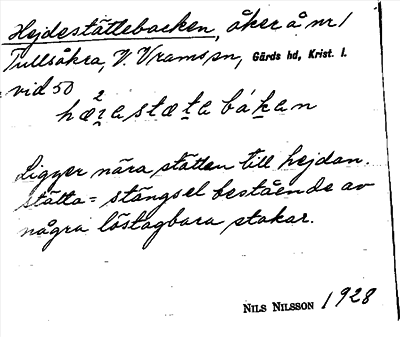 Hejdestättebacken, åker å nr 1
Tullsåkra, V. Vram sn, Gärds hd, Krist. l.
vid 50
Ligger nära stätten till hejdan.
stätta = stängsel bestående av
några löstagbara stakar.
NILS NILSSON 1928